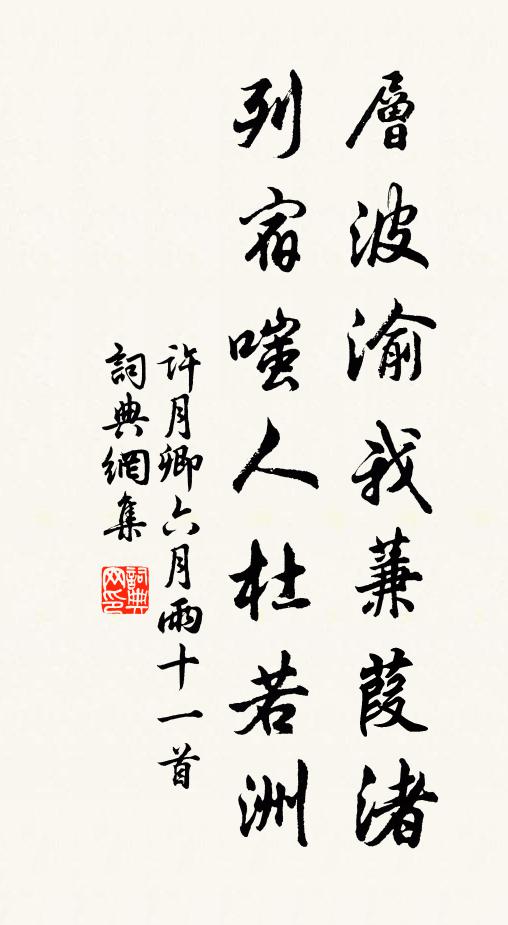 層波渝我蒹葭渚
列宿嗤人杜若洲
許月卿六月雨十一首
詞典網集
詞典
网印